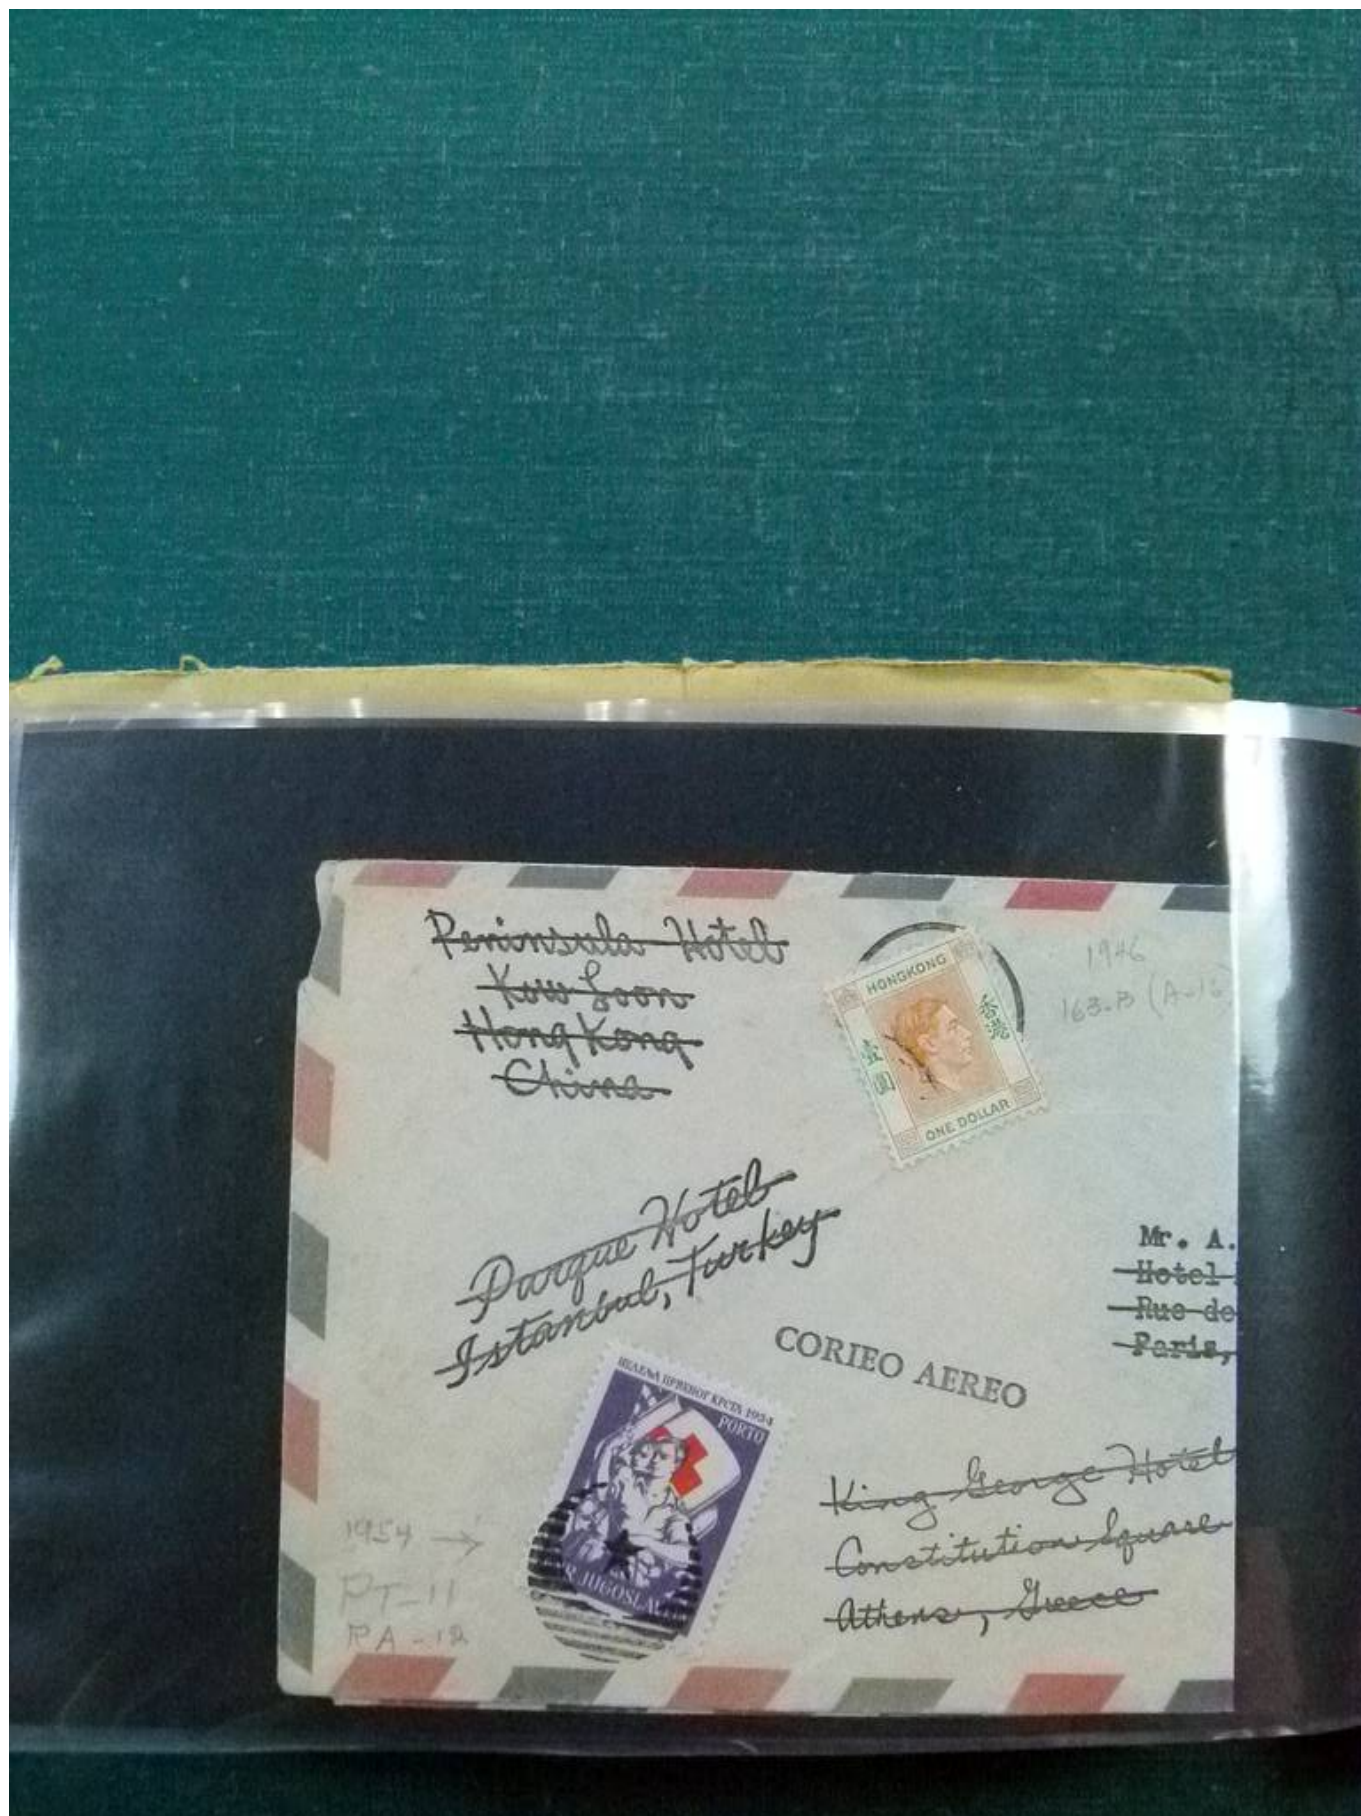 Peninsula Hotel
Kowloon
Hong Kong
China
HONGKONG
香港
壹圓
ONE DOLLAR
1946
163-B (A-16)
Parque Hotel
Istanbul, Turkey
CORIEO AEREO
Mr. A.
Hotel
Rue de
Paris,
НЕДЕЉА ЦРВЕНОГ КРСТА 1954
PORTO
JUGOSLAV
King George Hotel
Constitution Square
Athens, Greece
1954 →
PT-11
RA-12